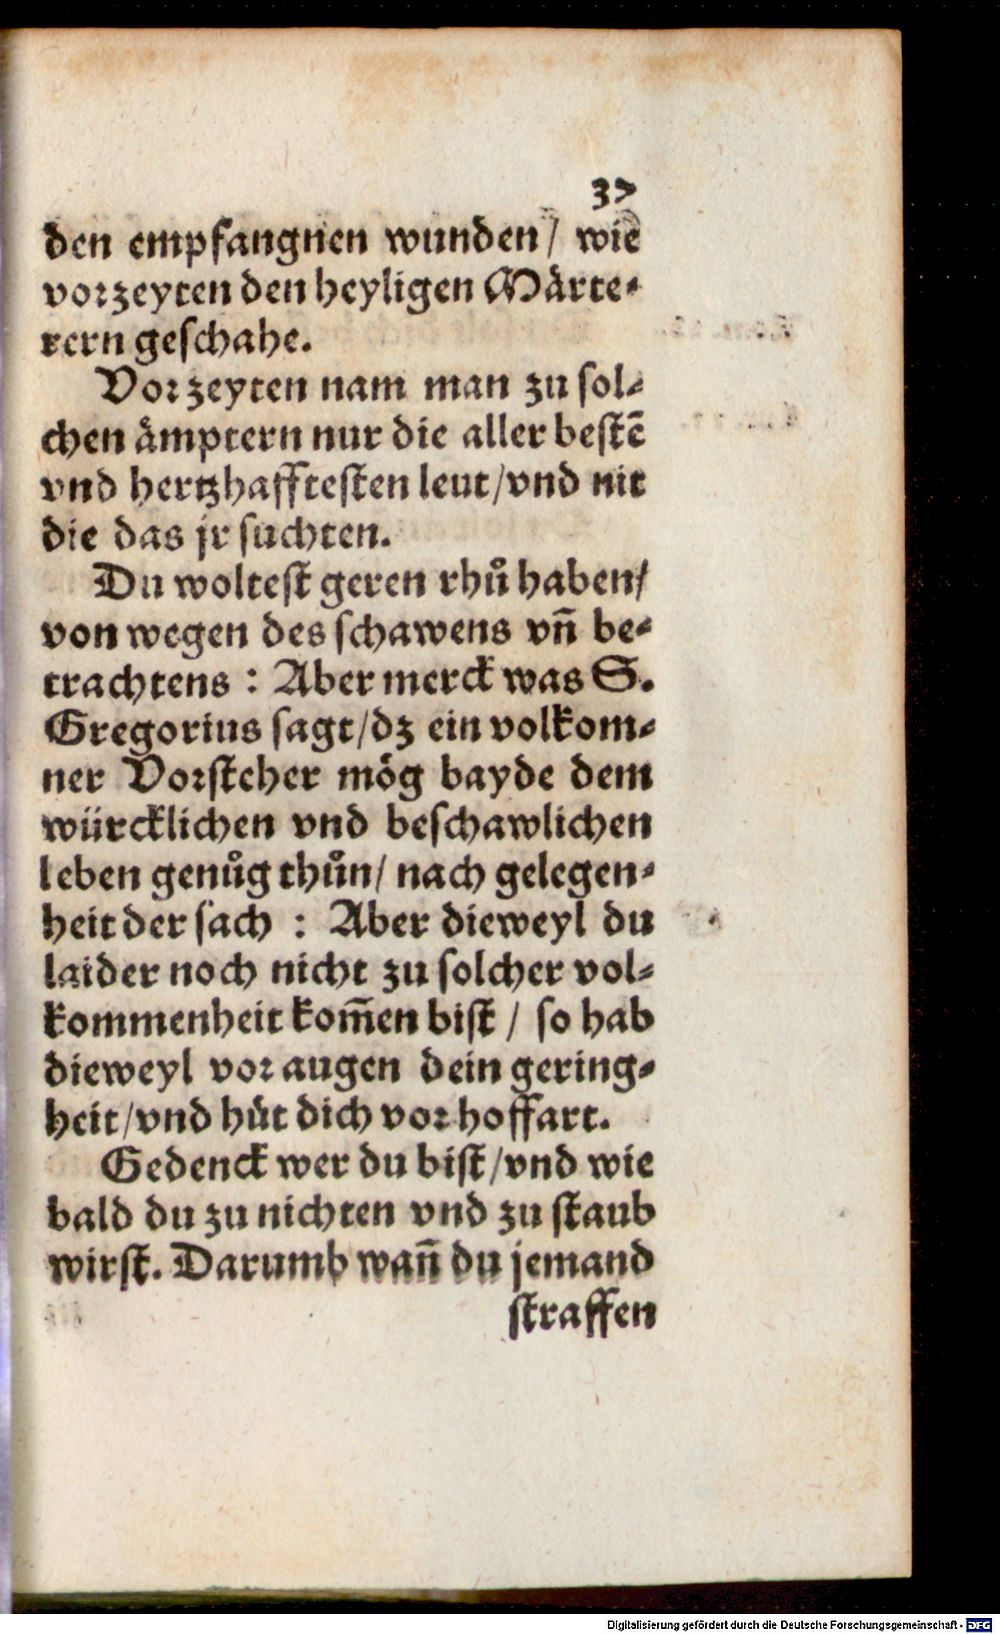 37
den empfangnen wunden / wie
vorzeyten den heyligen Märte-
rern geschahe.
Vorzeyten nam man zu sol-
chen ämptern nur die aller bestē
vnd hertzhafftesten leut / vnd nit
die das jr suchten.
Du woltest geren rhů haben /
von wegen des schawens vn̄ be-
trachtens : Aber merck was S.
Gregorius sagt / dz ein volkom-
ner Vorsteher mög bayde dem
würcklichen vnd beschawlichen
leben genůg thůn / nach gelegen-
heit der sach : Aber dieweyl du
laider noch nicht zu solcher vol-
kommenheit kom̄en bist / so hab
dieweyl vor augen dein gering-
heit / vnd hüt dich vor hoffart.
Gedenck wer du bist / vnd wie
bald du zu nichten vnd zu staub
wirst. Darumb wan̄ du jemand
straffen
Digitalisierung gefördert durch die Deutsche Forschungsgemeinschaft - DFG